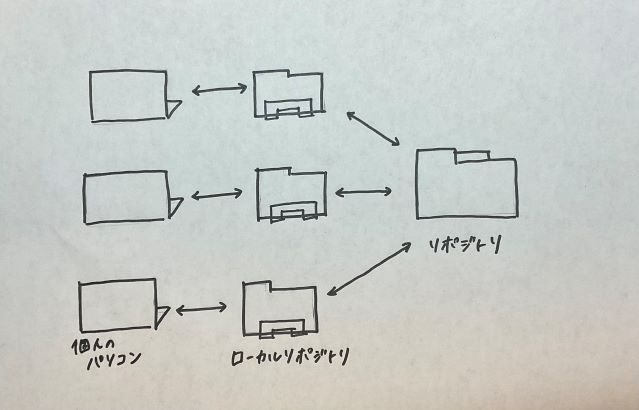 リポジトリ
個人の
パソコン
ローカルリポジトリ